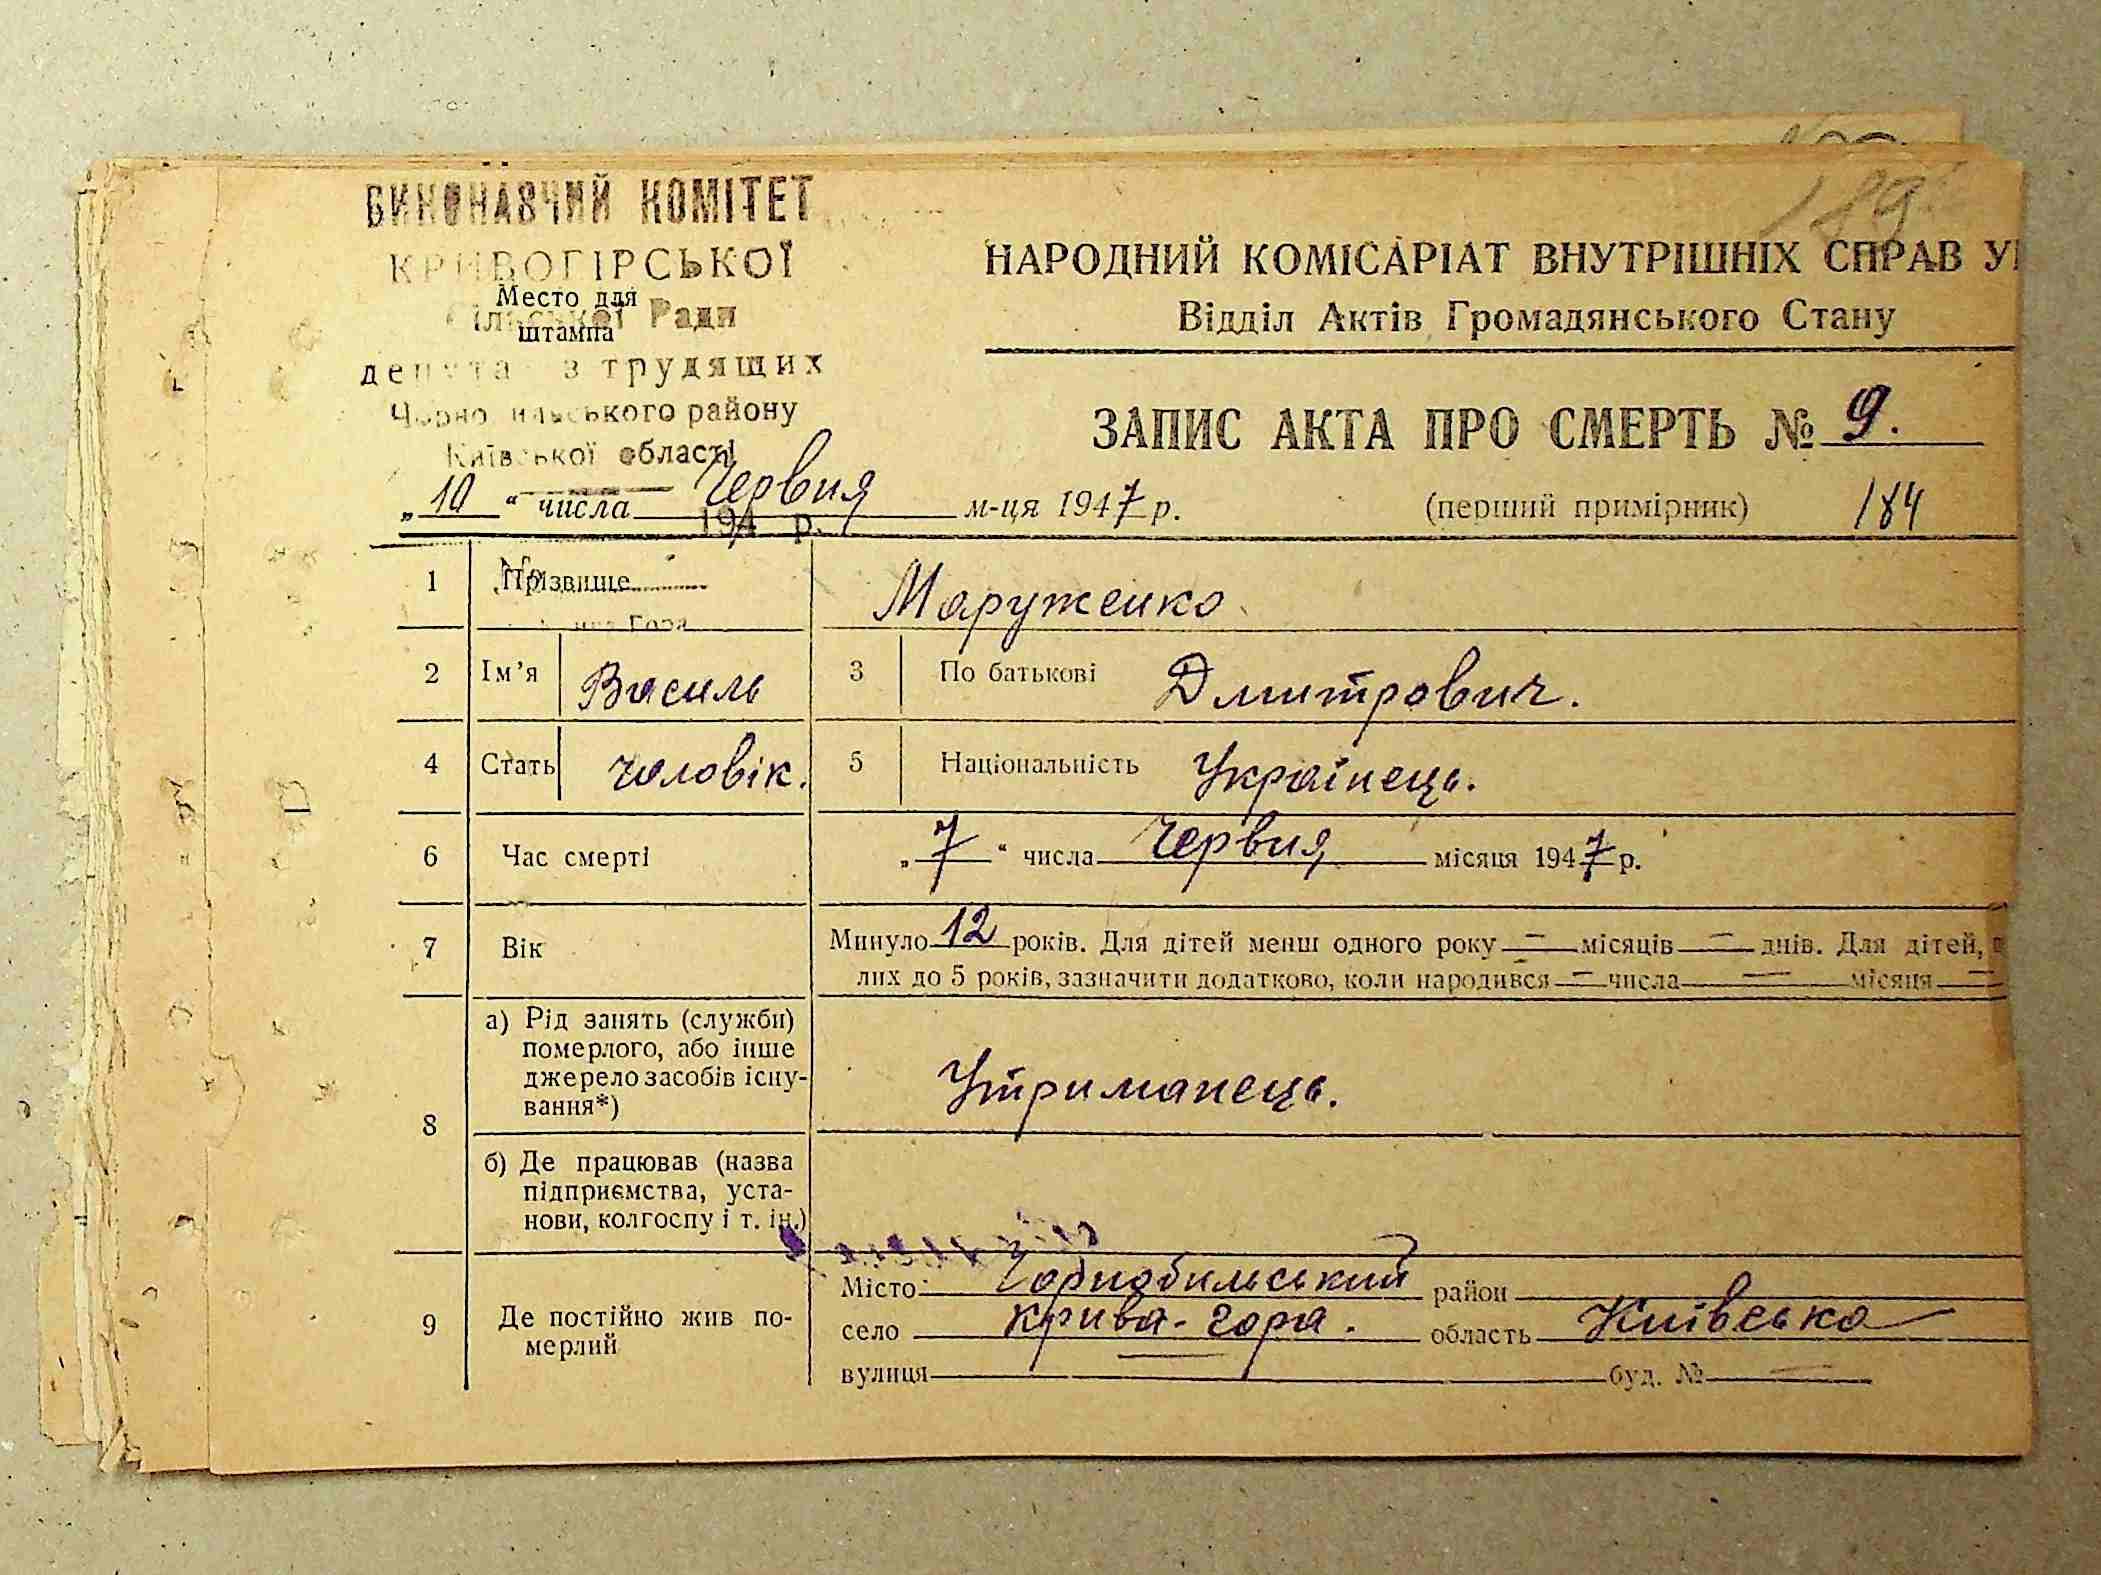 ВИКОНАВЧИЙ КОМІТЕТ
КРИВОГІРСЬКОЇ
Место для
Сільської Ради
штампа
трудящих
Чорнобильського району
Київської області
194 р.
189
НАРОДНИЙ КОМІСАРІАТ ВНУТРІШНІХ СПРАВ У
Відділ Актів Громадянського Стану
ЗАПИС АКТА ПРО СМЕРТЬ № 9.
„10“ числа Червня м-ця 1947 р. (перший примірник) 184
1 Прізвище Маруженко
Гора
2 Ім’я Василь 3 По батькові Дмитрович.
4 Стать чоловік. 5 Національність Українець.
6 Час смерті „7“ числа Червня місяця 1947 р.
7 Вік Минуло 12 років. Для дітей менш одного року — місяців — днів. Для дітей,
лих до 5 років, зазначити додатково, коли народився — числа — місяця —
8 а) Рід занять (служби) померлого, або інше джерело засобів існування*) Утриманець.
б) Де працював (назва підприємства, установи, колгоспу і т. ін.)
9 Де постійно жив померлий
Місто Чорнобильський район
село Крива-Гора. область Київська
вулиця буд. № —